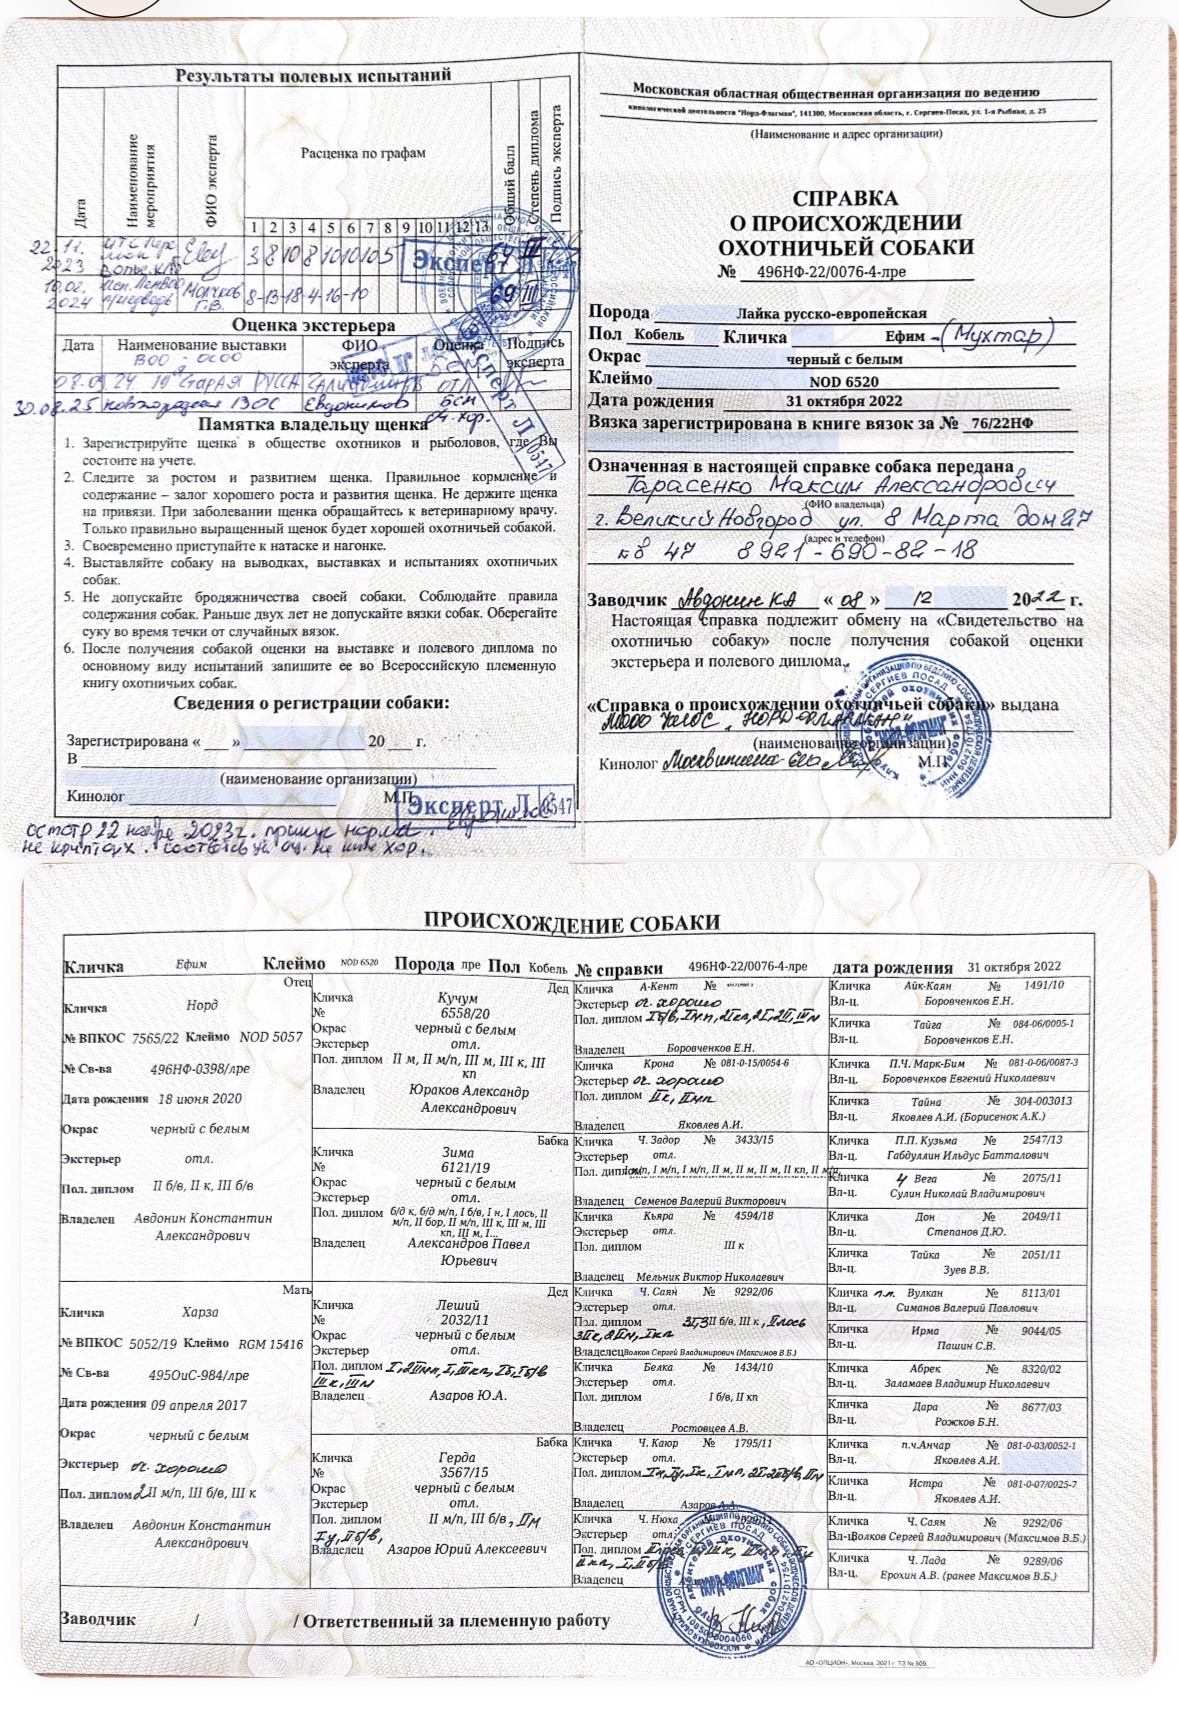 Результаты полевых испытаний
Дата
Наименование мероприятия
ФИО эксперта
Расценка по графам
Общий балл
Степень диплома
Подпись эксперта
1 2 3 4 5 6 7 8 9 10 11 12 13
22.11. 2023
3 8 10 8 10 10 10 5
64 III
Эксперт Л
10.02. 2024
Молчков Г.В.
8-13-18-4-16-10
69 III
Оценка экстерьера
Дата
Наименование выставки
ФИО эксперта
Оценка
Подпись эксперта
ВОО-ОСОО
08.09.24 Старая Русса
ОТЛ
30.08.25 Новгородская ВОС Евдокимов
Эксперт Л 0547
Памятка владельцу щенка
1. Зарегистрируйте щенка в обществе охотников и рыболовов, где Вы
состоите на учете.
2. Следите за ростом и развитием щенка. Правильное кормление и
содержание – залог хорошего роста и развития щенка. Не держите щенка
на привязи. При заболевании щенка обращайтесь к ветеринарному врачу.
Только правильно выращенный щенок будет хорошей охотничьей собакой.
3. Своевременно приступайте к натаске и нагонке.
4. Выставляйте собаку на выводках, выставках и испытаниях охотничьих
собак.
5. Не допускайте бродяжничества своей собаки. Соблюдайте правила
содержания собак. Раньше двух лет не допускайте вязки собак. Оберегайте
суку во время течки от случайных вязок.
6. После получения собакой оценки на выставке и полевого диплома по
основному виду испытаний запишите ее во Всероссийскую племенную
книгу охотничьих собак.
Сведения о регистрации собаки:
Зарегистрирована « ___ » 20 ___ г.
В
(наименование организации)
Кинолог М.П.
Эксперт Л 0547
осмотр 22 ноября 2023г. прикус норма.
не крипторх.
Московская областная общественная организация по ведению
кинологической деятельности "Норд-Флагман", 141300, Московская область, г. Сергиев-Посад, ул. 1-я Рыбная, д. 25
(Наименование и адрес организации)
СПРАВКА
О ПРОИСХОЖДЕНИИ
ОХОТНИЧЬЕЙ СОБАКИ
№ 496НФ-22/0076-4-лре
Порода Лайка русско-европейская
Пол Кобель Кличка Ефим - (Мухтар)
Окрас черный с белым
Клеймо NOD 6520
Дата рождения 31 октября 2022
Вязка зарегистрирована в книге вязок за № 76/22НФ
Означенная в настоящей справке собака передана
Тарасенко Максим Александрович
(ФИО владельца)
г. Великий Новгород ул. 8 Марта дом 27
(адрес и телефон)
кв 47 8921-690-82-18
Заводчик Авдонин КА « 08 » 12 2022 г.
Настоящая справка подлежит обмену на «Свидетельство на
охотничью собаку» после получения собакой оценки
экстерьера и полевого диплома.
«Справка о происхождении охотничьей собаки» выдана
"НОРД-ФЛАГМАН"
(наименование организации)
Кинолог М.П.
ПРОИСХОЖДЕНИЕ СОБАКИ
Кличка Ефим Клеймо NOD 6520 Порода лре Пол Кобель № справки 496НФ-22/0076-4-лре дата рождения 31 октября 2022
Отец
Кличка Норд
№ ВПКОС 7565/22 Клеймо NOD 5057
№ Св-ва 496НФ-0398/лре
Дата рождения 18 июня 2020
Окрас черный с белым
Экстерьер отл.
Пол. диплом II б/в, II к, III б/в
Владелец Авдонин Константин
Александрович
Мать
Кличка Харза
№ ВПКОС 5052/19 Клеймо RGM 15416
№ Св-ва 495ОиС-984/лре
Дата рождения 09 апреля 2017
Окрас черный с белым
Экстерьер оч. хорошо
Пол. диплом 2 II м/п, III б/в, III к
Владелец Авдонин Константин
Александрович
Дед
Кличка Кучум
№ 6558/20
Окрас черный с белым
Экстерьер отл.
Пол. диплом II м, II м/п, III м, III к, III
кп
Владелец Юраков Александр
Александрович
Бабка
Кличка Зима
№ 6121/19
Окрас черный с белым
Экстерьер отл.
Пол. диплом б/д к, б/д м/п, I б/в, I н, I лось, II
м/п, II бор, II м/п, III к, III м, III
кп, III м, I...
Владелец Александров Павел
Юрьевич
Дед
Кличка Леший
№ 2032/11
Окрас черный с белым
Экстерьер отл.
Пол. диплом
IIIк, IIIм
Владелец Азаров Ю.А.
Бабка
Кличка Герда
№ 3567/15
Окрас черный с белым
Экстерьер отл.
Пол. диплом II м/п, III б/в, IIм
Iу, IIб/в,
Владелец Азаров Юрий Алексеевич
Кличка А-Кент №
Экстерьер оч. хорошо
Пол. диплом
Владелец Боровченков Е.Н.
Кличка Крона № 081-0-15/0054-6
Экстерьер оч. хорошо
Пол. диплом IIк, IIмп
Владелец Яковлев А.И.
Кличка Ч. Задор № 3433/15
Экстерьер отл.
Пол. диплом I м/п, I м/п, I м/п, II м, II м, II м, II кп, II м/п,
Владелец Семенов Валерий Викторович
Кличка Кьяра № 4594/18
Экстерьер отл.
Пол. диплом III к
Владелец Мельник Виктор Николаевич
Кличка Ч. Саян № 9292/06
Экстерьер отл.
Пол. диплом II б/в, III к, IIлось
Владелец Волков Сергей Владимирович (Максимов В.Б.)
Кличка Белка № 1434/10
Экстерьер отл.
Пол. диплом I б/в, II кп
Владелец Ростовцев А.В.
Кличка Ч. Каюр № 1795/11
Экстерьер отл.
Пол. диплом
Владелец Азаров А.А.
Кличка Ч. Нюха №
Экстерьер отл.
Пол. диплом
Владелец
Кличка Айк-Каян № 1491/10
Вл-ц. Боровченков Е.Н.
Кличка Тайга № 084-06/0005-1
Вл-ц. Боровченков Е.Н.
Кличка П.Ч. Марк-Бим № 081-0-06/0087-3
Вл-ц. Боровченков Евгений Николаевич
Кличка Тайна № 304-003013
Вл-ц. Яковлев А.И. (Борисенок А.К.)
Кличка П.П. Кузьма № 2547/13
Вл-ц. Габдуллин Ильдус Батталович
Кличка Ч Вега № 2075/11
Вл-ц. Сулин Николай Владимирович
Кличка Дон № 2049/11
Вл-ц. Степанов Д.Ю.
Кличка Тайка № 2051/11
Вл-ц. Зуев В.В.
Кличка п.п. Вулкан № 8113/01
Вл-ц. Симанов Валерий Павлович
Кличка Ирма № 9044/05
Вл-ц. Пашин С.В.
Кличка Абрек № 8320/02
Вл-ц. Заламаев Владимир Николаевич
Кличка Дара № 8677/03
Вл-ц. Рожков Б.Н.
Кличка п.ч.Анчар № 081-0-03/0052-1
Вл-ц. Яковлев А.И.
Кличка Истра № 081-0-07/0025-7
Вл-ц. Яковлев А.И.
Кличка Ч. Саян № 9292/06
Вл-ц. Волков Сергей Владимирович (Максимов В.Б.)
Кличка Ч. Лада № 9289/06
Вл-ц. Ерохин А.В. (ранее Максимов В.Б.)
Заводчик / / Ответственный за племенную работу
АО «ОПЦИОН», Москва, 2021 г. ТЗ № 809.